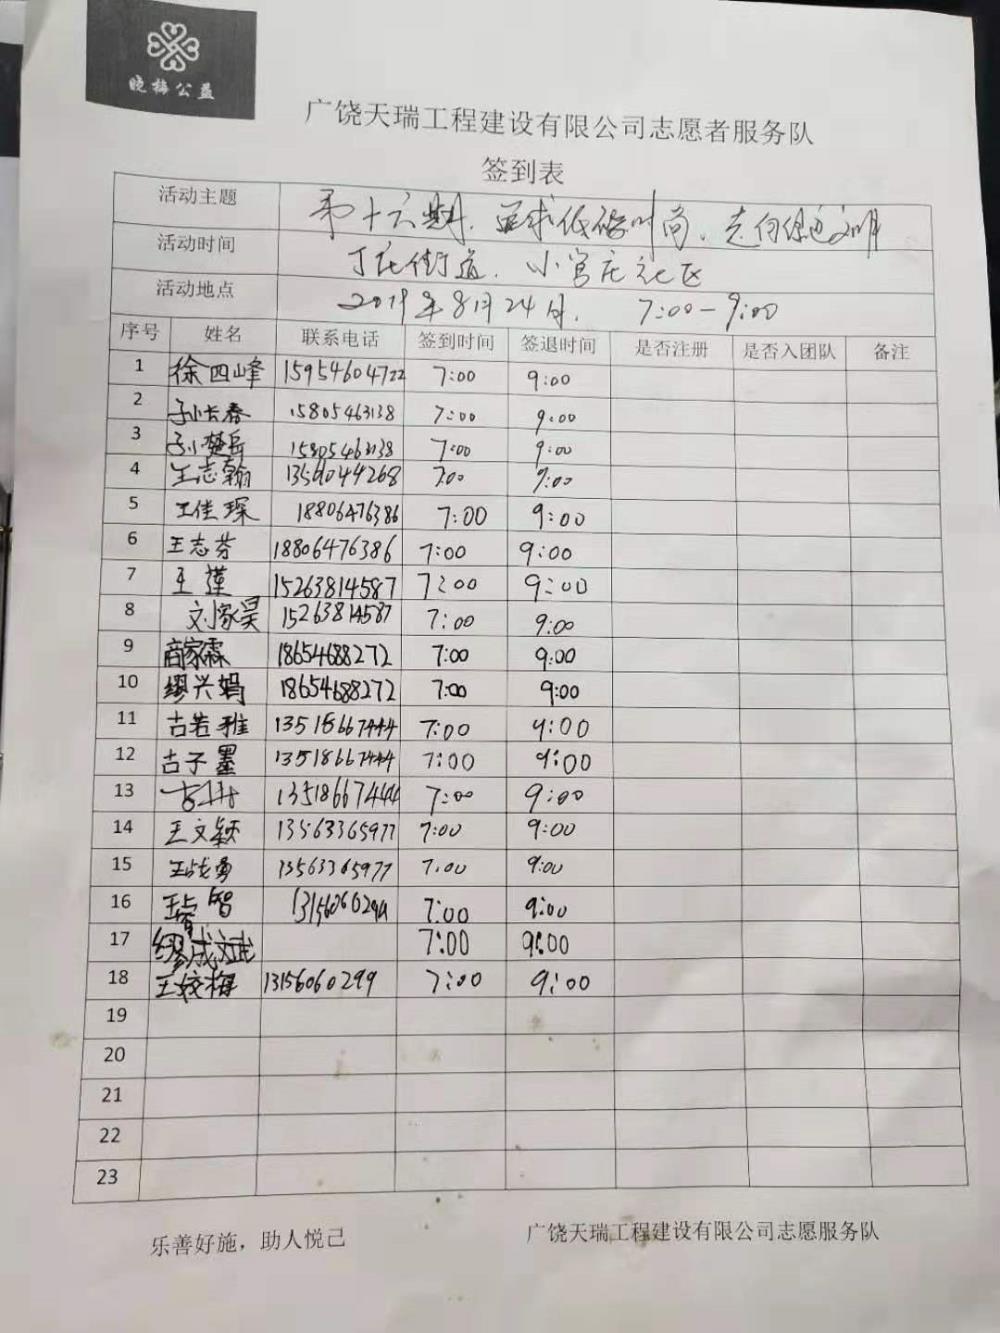 晓梅公益
广饶天瑞工程建设有限公司志愿者服务队
签到表
活动主题 第十六期、追求低碳时尚、走向绿色文明
活动时间 丁庄街道、小官庄社区
活动地点 2019年8月24日、 7:00-9:00
序号 姓名 联系电话 签到时间 签退时间 是否注册 是否入团队 备注
1 徐四峰 15954604722 7:00 9:00
2 孙长春 15805463138 7:00 9:00
3 孙楚岳 15805463138 7:00 9:00
4 王志翰 7:00 9:00
5 王佳琛 18806476386 7:00 9:00
6 王志芬 18806476386 7:00 9:00
7 王蓮 15263814587 7:00 9:00
8 刘家昊 15263814587 7:00 9:00
9 商家霖 18654688272 7:00 9:00
10 缪兴娟 18654688272 7:00 9:00
11 古若雅 13518667444 7:00 9:00
12 古子墨 13518667444 7:00 9:00
13 13518667444 7:00 9:00
14 王文颖 13563365977 7:00 9:00
15 王战勇 13563365977 7:00 9:00
16 智 7:00 9:00
17 缪成斌 7:00 9:00
18 王姣梅 13156060299 7:00 9:00
19
20
21
22
23
乐善好施，助人悦己 广饶天瑞工程建设有限公司志愿服务队